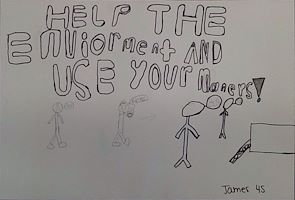 HELP THE
ENVIORMENT AND
USE YOUR Maners!
James 4S